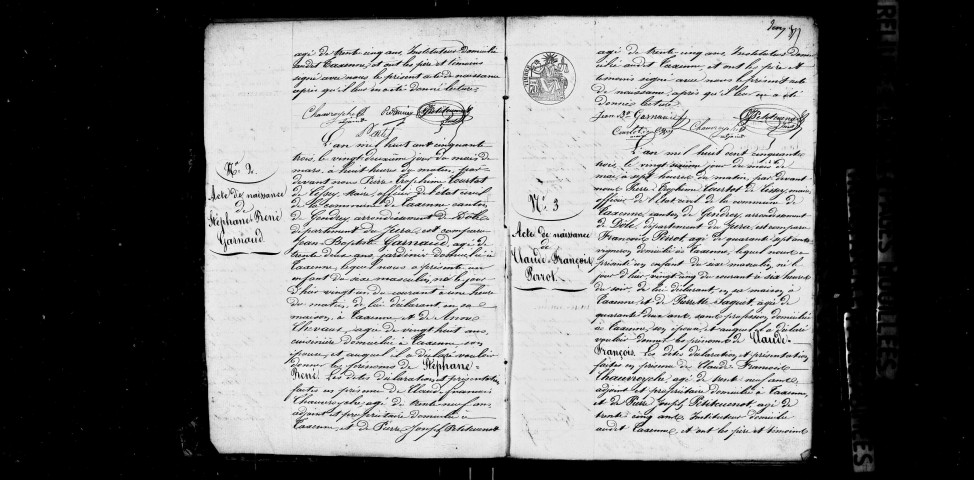 agé de trente cinq ans, Instituteur domicilié
audit Taxenne, et ont les père et témoins
signé avec nous le présent acte de naissance
après qu'il leur en a été donné lecture.
N.o 2.
Acte de naissance
de
Stéphane René
Garnaud
L'an mil huit cent cinquante
trois, le vingt deuxième jour du mois de
mars, à huit heures du matin, par-
devant nous Pierre Trophime Courtot
de Cissey, Maire, officier de l'état civil
de la commune de Taxenne canton
de Gendrey arrondissement de Dôle
département du Jura, est comparu
Jean Baptiste Garnaud, agé de
trente deux ans, jardinier domicilié à
Taxenne, lequel nous a présenté un
enfant du sexe masculin, né le jour
d'hier vingt un du courant à une heure
du matin, de lui déclarant en sa
maison, à Taxenne, et de Anne
Chevaux, agée de vingt huit ans,
cuisinière domiciliée à Taxenne, son
épouse, et auquel il a déclaré vouloir
donner les prénoms de Stéphane-
René. Les dites déclaration et présentation
faites en présence de Claude François
Chauvroyche, agé de trente neuf ans,
adjoint et propriétaire domicilié à
Taxenne, et de Pierre Joseph Petitcuenot
agé de trente cinq ans, Instituteur domi-
cilié audit Taxenne, et ont les père et
témoins signé avec nous le présent acte
de naissance, après qu'il leur en a été
donné lecture.
Jean Bte Garnaud
N.o 3
Acte de naissance
de
Claude François
Perrot.
L'an mil huit cent cinquante
trois, le vingt sixième jour du mois de
mai, à sept heures du matin, par devant
nous Pierre Trophime Courtot de Cissey, maire,
officier de l'état civil de la commune de
Taxenne, canton de Gendrey, arrondissement
de Dôle, département du Jura, est comparu
François Perrot, agé de quarante sept ans,
domicilié à Taxenne, lequel nous a
présenté un enfant du sexe masculin, né le
jour d'hier, vingt cinq du courant à six heures
du soir, de lui déclarant, en sa maison, à
Taxenne, et de Pierrette Jaquot, agée de
quarante deux ans, sans profession, domiciliée
à Taxenne, son épouse, et auquel il a déclaré
vouloir donner les prénoms de Claude-
François. Les dites déclaration, et présentation
faites en présence de Claude François
Chauvroyche, agé de trente neuf ans,
adjoint et propriétaire domicilié à Taxenne,
et de Pierre Joseph Petitcuenot, agé de
trente cinq ans, Instituteur domicilié
audit Taxenne, et ont les père et témoins